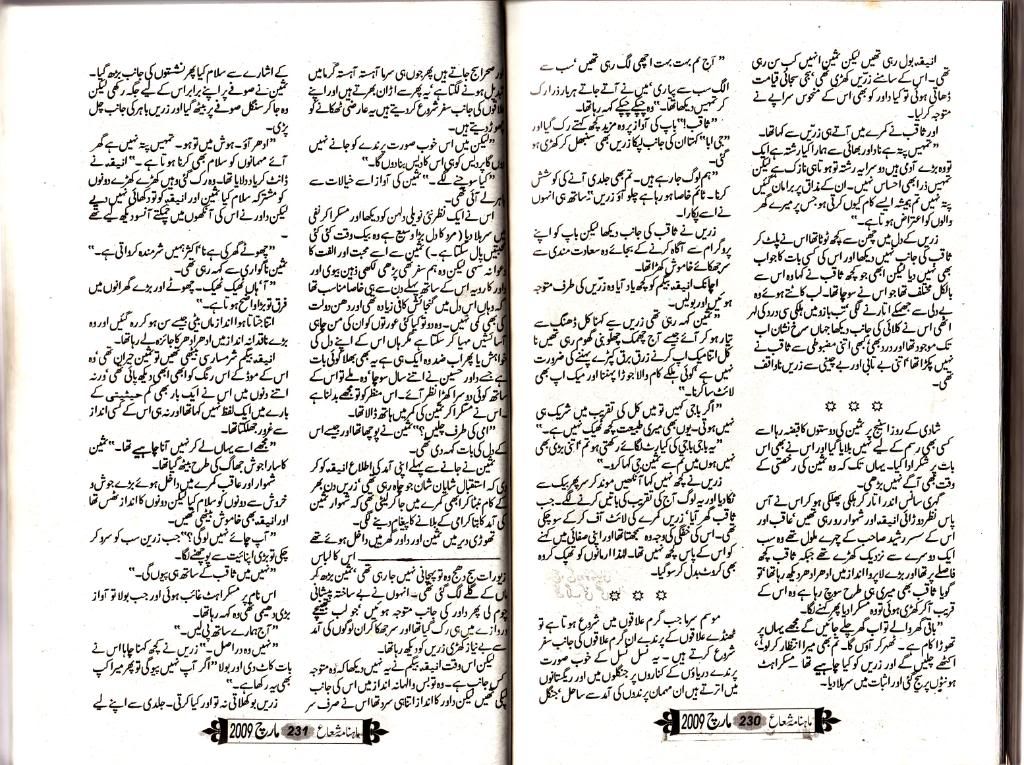 انیقہ بول رہی تھیں لیکن ثمین انہیں کب سن رہی
تھی۔ اس کے سامنے زریں کھڑی تھی، سجی سجائی قیامت
ڈھاتی ہوئی تو کیا داور کو بھی اس کے منحوس سراپے نے
متوجہ کر لیا۔
اور ثاقب نے کمرے میں آتے ہی زریں سے کہا تھا۔
"تمہیں پتہ ہے ناداور بھائی سے ہمارا کیا رشتہ ہے ایک
تو وہ بڑے آدمی ہیں دوسرا یہ رشتہ تو ہوتا ہی نازک ہے لیکن
تمہیں ذرا بھی احساس نہیں۔ ان کے مذاق پر برا مان گئیں
پتہ نہیں تم ہمیشہ ایسے کام کیوں کرتی ہو جس پر میرے گھر
والوں کو اعتراض ہوتا ہے۔"
زریں کے دل میں چھن سے کچھ ٹوٹا تھا اس نے پلٹ کر
ثاقب کی جانب نہیں دیکھا اور اس کی کسی بات کا جواب
بھی نہیں دیا لیکن ابھی جو کچھ ثاقب نے کہا وہ اس سے
بالکل مختلف تھا جو اس نے سوچا تھا۔ لب کاٹتے ہوئے وہ
بے دلی سے جھمکے اتارنے لگی تب بازو میں ہلکی سی درد کی لہر
اٹھی اس نے کلائی کی جانب دیکھا جہاں سرخ نشان اب
تک موجود تھا اور درد بھی، کبھی اتنی مضبوطی سے ثاقب نے
نہیں پکڑا تھا، اتنی بے تابی اور بے چینی سے زریں ناواقف
تھی۔
☼ ☼ ☼
شادی کے روز اسٹیج پر ثمین کی دوستوں کا قبضہ رہا اسے
کسی بھی رسم کے لیے نہیں بلایا گیا اور اس نے بھی اس
بات پر شکر ادا کیا۔ یہاں تک کہ وہ ثمین کی رخصتی کے
وقت بھی آگے نہیں بڑھی۔
گہری سانس اندر اتار کر ہلکی پھلکی ہو کر اس نے آس
پاس نظر دوڑائی انیقہ اور شہوار رو رہی تھیں، عاقب اور
اس کے سسر رشید صاحب کے چہرے ملول تھے وہ سب
ایک دوسرے سے نزدیک کھڑے تھے جبکہ ثاقب کچھ
فاصلے پر تھا اور بڑے لاپروا انداز میں ادھر ادھر دیکھ رہا تھا، تو
گویا ثاقب بھی میری ہی طرح سوچ رہا ہے وہ اس کے
قریب آ کر کھڑی ہوئی تو وہ مسکرا دیا پھر کہنے لگا۔
"باقی گھر والے تو اب گھر چلے جائیں گے مجھے یہاں پر
تھوڑا کام ہے۔ ٹھہر کر آؤں گا۔ تم بھی میرا انتظار کر لو نا،
اکٹھے چلیں گے اور زریں کو کیا چاہیے تھا۔ مسکراہٹ
ہونٹوں پر سج گئی اور اثبات میں سر ہلا دیا۔
"آج تم بہت بہت اچھی لگ رہی تھیں، سب سے
الگ سب سے پیاری، میں نے آتے جاتے ہر بار ذرا رک
کر تمہیں دیکھا تھا۔" وہ چپکے چپکے کہہ رہا تھا۔
"ثاقب!" باپ کی آواز پر وہ مزید کچھ کہتے رک گیا اور
"جی ابا" کہتا ان کی جانب لپکا زریں بھی سنبھل کر کھڑی ہو
گئی۔
"ہم لوگ جا رہے ہیں۔ تم بھی جلدی آنے کی کوشش
کرنا۔ ٹائم خاصا ہو رہا ہے چلو آؤ زریں" ساتھ ہی انہوں
نے اسے پکارا۔
زریں نے ثاقب کی جانب دیکھا لیکن باپ کو اپنے
پروگرام سے آگاہ کرنے کے بجائے وہ سعادت مندی سے
سر جھکائے خاموش کھڑا تھا۔
اچانک انیقہ بیگم کو کچھ یاد آیا وہ زریں کی طرف متوجہ
ہوئیں اور بولیں۔
"ثمین کہہ رہی تھی زریں سے کہنا کل ڈھنگ سے
تیار ہو کر آئے جیسے آج پھمک چھلو بنی گھوم رہی تھیں نا
کل اتنا میک اپ کرنے زرق برق کپڑے پہننے کی ضرورت
نہیں ہے، کوئی ہلکے کام والا جوڑا پہننا اور میک اپ بھی
لائٹ سا کرنا۔"
"اگر باجی کہیں تو میں کل کی تقریب میں شریک ہی
نہیں ہوتی۔ یوں بھی میری طبیعت کچھ ٹھیک نہیں ہے۔"
"یہ باجی باجی کی کیا رٹ لگائے رکھتی ہو تم، اتنی بڑی بھی
نہیں ہوں میں تم سے ثمین جی کہا کرو۔"
زریں نے کچھ نہیں کہا آنکھیں موند کر سر پیچھے بیک سے
ٹکا دیا اور یہ لوگ آج کی تقریب کی باتیں کرنے لگے۔ جب
ثاقب گھر آیا، زریں کمرے کی لائٹ آف کر کے سو چکی
تھی۔ اس کی خفگی کی وجہ وہ سمجھتا تھا اور اپنی صفائی میں کہنے
کو اس کے پاس کچھ نہیں تھا۔ لہٰذا ارمانوں کو تھپک کر وہ
بھی کروٹ بدل کر سو گیا۔
☼ ☼ ☼
موسم سرما جب گرم علاقوں میں شروع ہوتا ہے تو
ٹھنڈے علاقوں کے پرندے ان گرم علاقوں کی جانب سفر
شروع کرتے ہیں۔ یہ نسل نسل کے خوب صورت
پرندے دریاؤں کے کناروں پر جنگلوں میں اور ریگستانوں
میں اترتے ہیں ان مہمان پرندوں کی آمد سے ساحل، جنگل
ماہنامہ شعاع 230 مارچ 2009
اور صحرا سج جاتے ہیں پھر جوں ہی سرما آہستہ آہستہ گرما میں
تبدیل ہونے لگتا ہے، یہ پھر سے اڑان بھرتے ہیں اور اپنے
علاقوں کی جانب سفر شروع کر دیتے ہیں یہ عارضی ٹھکانے کو
چھوڑ دیتے ہیں۔
"لیکن میں اس خوب صورت پرندے کو جانے نہیں
دوں گا پردیس کو ہی اس کا دیس بنا دوں گا۔"
"کیا سوچنے لگے۔" ثمین کی آواز اسے خیالات سے
باہر لے آئی تھی۔
اس نے ایک نظر نئی نویلی دلہن کو دیکھا اور مسکرا کر نفی
میں سر ہلا دیا (مرد کا دل بڑا وسیع ہے وہ بیک وقت کئی کئی
محبتیں پال سکتا ہے۔) ثمین سے اسے محبت اور الفت کا
دعوا نہ سہی لیکن وہ ہم سفر تھی پڑھی لکھی ذہین بیوی اور
داور کا رویہ اس کے ساتھ پہلے دن سے ہی خاصا مناسب تھا
کہ وہاں اس دل میں گنجائش کافی زیادہ تھی اور دھن دولت
کی بھی کمی نہیں۔ وہ دو تو کیا کئی عورتوں کو ان کی من چاہی
آسائشیں مہیا کر سکتا ہے مگر ہاں اس کے اپنے دل کی
خواہش یا پھر اب ضد وہ ایک ہی ہے، یہ بھی بھلا کوئی بات
ہے جسے داور حسین نے اتنے سال سوچا، وہ ملے تو اس کے
ساتھ کوئی دوسرا کھڑا نظر آئے۔ اس منظر کو تو مجھے بدلنا ہے
۔ اس نے مسکرا کر ثمین کی کمر میں ہاتھ ڈالا تھا۔
"امی کی طرف چلیں؟" ثمین نے پوچھا تھا اور جیسے اس
کے دل کی بات کہہ دی تھی۔
ثمین نے جانے سے پہلے اپنی آمد کی اطلاع انیقہ کو کر
دی کہ استقبال شایان شان جو چاہ رہی تھی، زریں دن بھر
کے کام نمٹا کر ابھی کمرے میں جا کر لیٹی تھی کہ شہوار ثمین
کی آمد کا بتا کر امی کے بلانے کا پیغام دینے لگی۔
تھوڑی دیر میں ثمین اور داور گھر میں داخل ہوئے تھے
اس کا لباس
زیورات سج دھج وہ تو پہچانی نہیں جا رہی تھی، ثمین بڑھ کر
ماں کے گلے لگ گئی تھی۔ انہوں نے بے ساختہ پیشانی
چوم لی پھر داور کی جانب متوجہ ہوئیں، جو لب بھینچے
دروازے میں ہی رک گیا تھا اور سر جھکا کر ان لوگوں کی آمد
سے بے نیاز کھڑی زریں کو دیکھ رہا تھا۔
لیکن اس وقت انیقہ بیگم نے یہ نہیں دیکھا کہ وہ متوجہ
کس کی جانب ہے۔ وہ تو بس والہانہ انداز میں اس کی جانب
لپکی تھیں لیکن داور کا انداز اتنا ہی سرد تھا اس نے صرف سر
کے اشارے سے سلام کیا پھر نشستوں کی جانب بڑھ گیا۔
ثمین نے صوفے پر اپنے برابر اس کے لیے جگہ رکھی لیکن
وہ جا کر سنگل صوفے پر بیٹھ گیا اور زریں باہر کی جانب چل
پڑی۔
"ادھر آؤ۔ ہوش میں تو ہو۔ تمہیں پتہ نہیں ہے گھر
آئے مہمانوں کو سلام بھی کرنا ہوتا ہے۔" انیقہ نے
ڈانٹ کر یاد دلایا تھا۔ وہ رک گئی وہیں کھڑے کھڑے دونوں
کو مشترکہ سلام کیا ثمین اور انیقہ کو تو دکھائی نہیں دیے
لیکن داور نے اس کی آنکھوں میں چمکتے آنسو دیکھ لیے تھے
۔
"چھوٹے گھر کی ہے نا، اکثر ہمیں شرمندہ کرواتی ہے۔"
ثمین ناگواری سے کہہ رہی تھی۔
"آہاں ٹھیک ٹھیک۔ چھوٹے اور بڑے گھرانوں میں
فرق تو بڑا واضح ہوتا ہے۔"
اتنا جتاتا ہوا انداز ماں بیٹی جیسے سن ہو کر رہ گئیں اور وہ
بڑے ناقدانہ انداز میں ادھر ادھر کا جائزہ لے رہا تھا۔
انیقہ بیگم شرمسار سی بیٹھی تھیں تو ثمین حیران تھی، وہ
اس کے موڈ کے اس رنگ کو ابھی ابھی دیکھ پائی تھی، ورنہ
اتنے دنوں میں اس نے ایک بار بھی کم حیثیتی کے
بارے میں ایک لفظ نہیں کہا تھا اور نہ ہی اس کے کسی انداز
سے غرور جھلکتا تھا۔
"مجھے اسے یہاں لے کر نہیں آنا چاہیے تھا۔" ثمین
کا سارا جوش جھاگ کی طرح بیٹھ گیا تھا۔
شہوار اور عاقب کمرے میں داخل ہوئے بڑے جوش و
خروش سے دونوں کو سلام کیا لیکن دونوں کا انداز ٹھس تھا
اور انیقہ بھی خاموش بیٹھی تھیں۔
"آپ چائے نہیں لو گی؟" جب زریں سب کو سرو کر
چکی تو بڑی اپنائیت سے پوچھنے لگا۔
"نہیں میں ثاقب کے ساتھ ہی پیوں گی۔"
اس نام پر مسکراہٹ غائب ہوئی اور جب بولا تو آواز
بڑی دھیمی تھی وہ کہہ رہا تھا۔
"آج ہمارے ساتھ پی لیں۔"
"نہیں وہ دراصل۔" زریں نے کچھ کہنا چاہا اس نے
بات کاٹ دی اور بولا "اگر آپ نہیں پیو گی تو پھر میرا کپ
بھی یہ رکھا ہے۔"
زریں بوکھلاتی نہ تو اور کیا کرتی۔ جلدی سے اپنے لیے
ماہنامہ شعاع 231 مارچ 2009